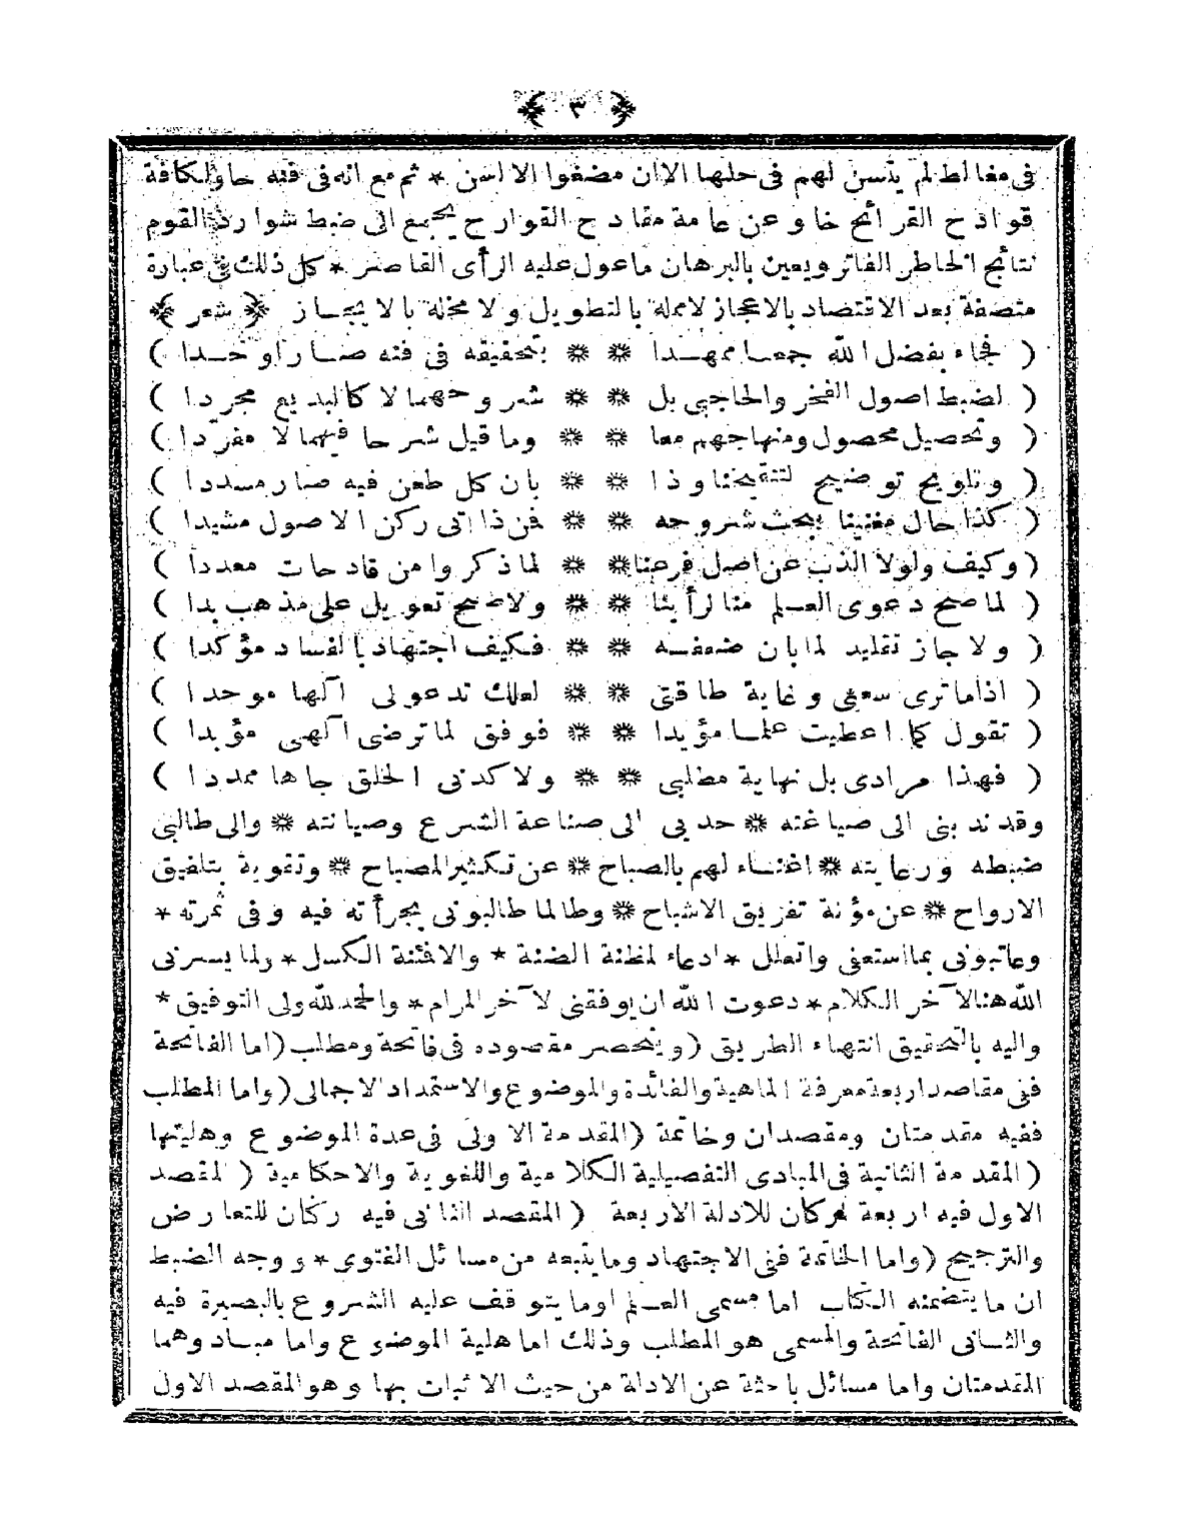 ﴿ ٣ ﴾
فى مغالط لم يتسن لهم فى حلها الا ان مضغوا الالسن * ثم مع انه فى فنه حاو لكافة
قوادح القرائح خاو عن عامة مقادح القوارح يجمع الى ضبط شوارد القوم
نتائج الخاطر الفاتر ويعين بالبرهان ما عول عليه الرأى القاصر * كل ذلك فى عبارة
متصفة بعد الاقتصاد بالاعجاز لا مملة بالتطويل ولا مخلة بالايجاز ﴿ شعر ﴾
( فجاء بفضل الله جمعا ممهدا ** بتحقيقه فى فنه صار اوحدا )
( لضبط اصول الفخر والحاجبى بل ** شروحهما لا كالبديع مجردا )
( وتحصيل محصول ومنهاجهم معا ** وما قيل شرحا فيهما لا مفردا )
( وتلويح توضيح لتنقيحنا وذا ** بان كل طعن فيه صار مسددا )
( كذا حال مغنينا ببحث شروحه ** فمن ذا اتى ركن الاصول مشيدا )
( وكيف ولولا الذب عن اصل فرعنا ** لما ذكروا من قادحات معددا )
( لما صح دعوى العلم منا لرأينا ** ولا صح تعويل على مذهب بدا )
( ولا جاز تقليد لما بان ضعفه ** فكيف اجتهاد بالفساد مؤكدا )
( اذا ما ترى سعيى وغاية طاقتى ** لعلك تدعو لى آلها موحدا )
( تقول كما اعطيت علما مؤيدا ** فوفق لما ترضى آلهى مؤبدا )
( فهذا مرادى بل نهاية مطلبى ** ولا كدنى الخلق جاها ممددا )
وقد ندبنى الى صياغته * حدبى الى صناعة الشرع وصيانته * والى طالبى
ضبطه ورعايته * اغناء لهم بالصباح * عن تكثير المصباح * وتقوية بتلفيق
الارواح * عن مؤنة تفريق الاشباح * وطالما طالبونى بجرأته فيه وفى ثمرته *
وعاتبونى بما استعفى واتعلل * ادعاء لمظنة الضنة * والافئنة الكسل * ولما يسرنى
الله هنالآخر الكلام * دعوت الله ان يوفقنى لآخر المرام * والحمد لله ولى التوفيق *
واليه بالتحقيق انتهاء الطريق ( وينحصر مقصوده فى فاتحة ومطلب ( اما الفاتحة
ففى مقاصد اربعة معرفة الماهية والفائدة والموضوع والاستمداد الاجمالى ( واما المطلب
ففيه مقدمتان ومقصدان وخاتمة ( المقدمة الاولى فى عدة الموضوع وهليتها
( المقدمة الثانية فى المبادى التفصيلية الكلامية واللغوية والاحكامية ( المقصد
الاول فيه اربعة اركان للادلة الاربعة ( المقصد الثانى فيه ركنان للتعارض
والترجيح ( واما الخاتمة ففى الاجتهاد وما يتبعه من مسائل الفتوى * ووجه الضبط
ان ما يتضمنه الكتاب اما مسمى العلم او ما يتوقف عليه الشروع بالبصيرة فيه
والثانى الفاتحة والمسمى هو المطلب وذلك اما هلية الموضوع واما مباد وهما
المقدمتان واما مسائل باحثة عن الادلة من حيث الاثبات بها وهو المقصد الاول